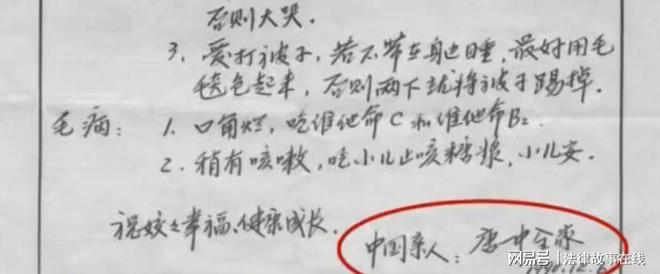 否则大哭.
3、爱打被子,若不带在身边睡,最好用毛
毯包起来,否则两下就将被子踢掉.
毛病: 1. 口角烂,吃维他命C和维他命B₂.
2. 稍有咳嗽,吃小儿止咳糖浆,小儿安.
祝姣姣幸福、健康成长.
中国亲人: 唐中全家
网易号 | 法律故事在线